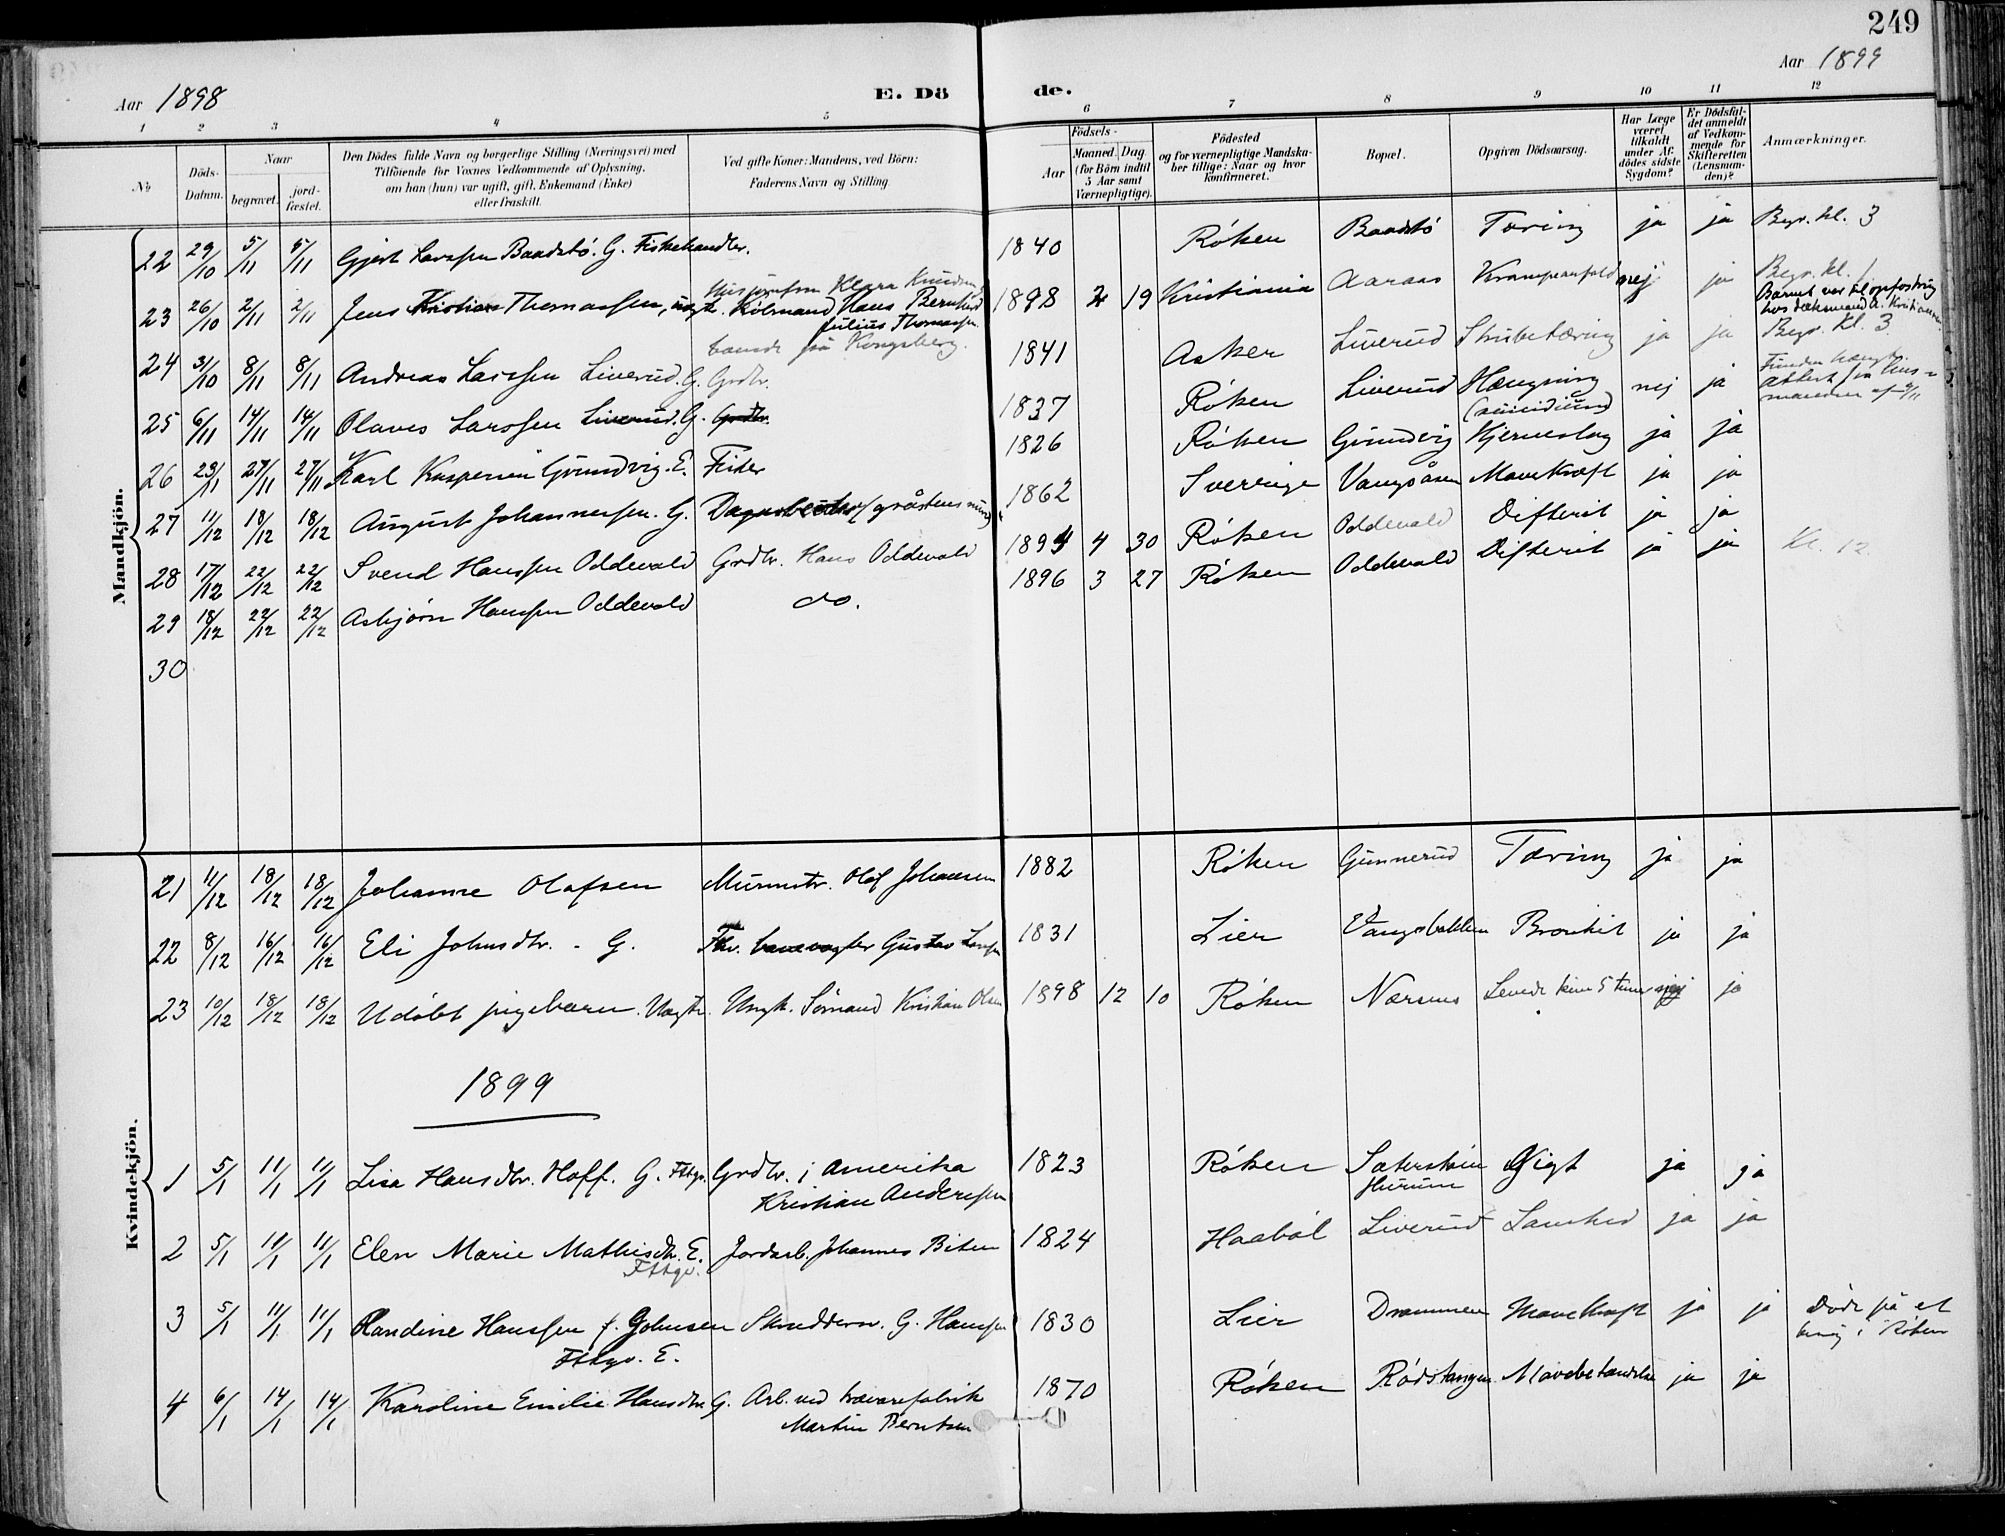 249
Aar 1898
E. Dö
de.
Aar 1899
1 2 3 4 5 6 7 8 9 10 11 12
№
Döds-Datum.
Naar
begravet.
jord-fæstet.
Den Dödes fulde Navn og borgerlige Stilling (Næringsvei) med
Tilföiende for Voxnes Vedkommende af Oplysning,
om han (hun) var ugift, gift, Enkemand (Enke)
eller fraskilt.
Ved gifte Koner: Mandens, ved Börn:
Faderens Navn og Stilling.
Födsels-
Aar
Maaned. Dag
(for Börn indtil
5 Aar samt
Værnepligtige).
Födested
og for værnepligtige Mandska-
ber tillige: Naar og hvor
konfirmeret.
Bopæl.
Opgiven Dödsaarsag.
Har Læge
været
tilkaldt
under Af-
dödes sidste
Sygdom?
Er Dödsfal-
det anmeldt
af Vedkom-
mende for
Skifteretten
(Lensman-
den)?
Anmærkninger.
Mandkjön.
22 29/10 5/11 5/11 Gjert Larssen Baadstö. G. Fiskehandler. 1840 Röken Baadstö Tæring ja ja Begr. kl. 3
23 26/10 2/11 2/11 Jens Kristian Thomassen, uægte. Kölmand Hans Bernhard Julius Thomassen 1898 2 19 Kristiania Aaraas Krampeanfald nej ja Begr. kl. 1
Barnet var til opfostring
hos A. Kristiansen
boende på Kongsberg.
24 31/10 8/11 8/11 Andreas Larssen Liverud. G. Grdbr. 1841 Asker Liverud Strubetæring ja ja Begr. kl. 3
25 6/11 14/11 14/11 Olaves Larssen Liverud. G. Grdbr. 1837 Röken Liverud Hængning (suicidium) nej ja Funden hængt.
Attest fra lens-
manden af /11
26 23/11 27/11 27/11 Karl Kaspersen Grundvig. E. Fisker 1826 Röken Grundvig Hjerneslag ja ja
27 11/12 18/12 18/12 August Johannessen. G. 1862 Sverrige Vangsåsen Mavekræft ja ja
28 17/12 22/12 22/12 Svend Hanssen Oddevald Grdbr. Hans Oddevald 1894 4 30 Röken Oddevald Difterit ja ja
29 18/12 22/12 22/12 Asbjörn Hanssen Oddevald do. 1896 3 27 Röken Oddevald Difterit ja ja Kl. 12.
30
Kvindekjön.
21 11/12 18/12 18/12 Johanne Olafsen Murmstr. Olaf Johansen 1882 Röken Gunnerud Tæring ja ja
22 8/12 16/12 16/12 Eli Johnsdtr. - G. Fhv. banevogter Gustav Larssen 1831 Lier Vangsbakken Bronkit ja ja
23 10/12 18/12 18/12 Udöbt pigebarn. Uægte. Ungk. Sömand Kristian Olsen 1898 12 10 Röken Nærsnes Levede kun 5 timer nej ja
1899
1 5/1 11/1 11/1 Lisa Hansdtr. Hoff. G. Fttgv. Grdbr. i Amerika
Kristian Anderssen 1823 Röken Sæterstöen
Hurum Gigt ja ja
2 5/1 11/1 11/1 Elen Marie Mathisdtr. E.
Fttgv. Jordarb. Johannes Biten 1824 Haaböl Liverud ja ja
3 5/1 11/1 11/1 Olandine Hanssen f. Johnsen
Fttgv. E. Skrædderm. G. Hanssen 1830 Lier Drammen Mavekræft ja ja Döde på et
besög i Röken
4 6/1 14/1 14/1 Karoline Emilie Hansdtr G. Arb. ved trævarefabrik
Martin Berntsen 1870 Röken Rödstangen Mavebetændelse ja ja